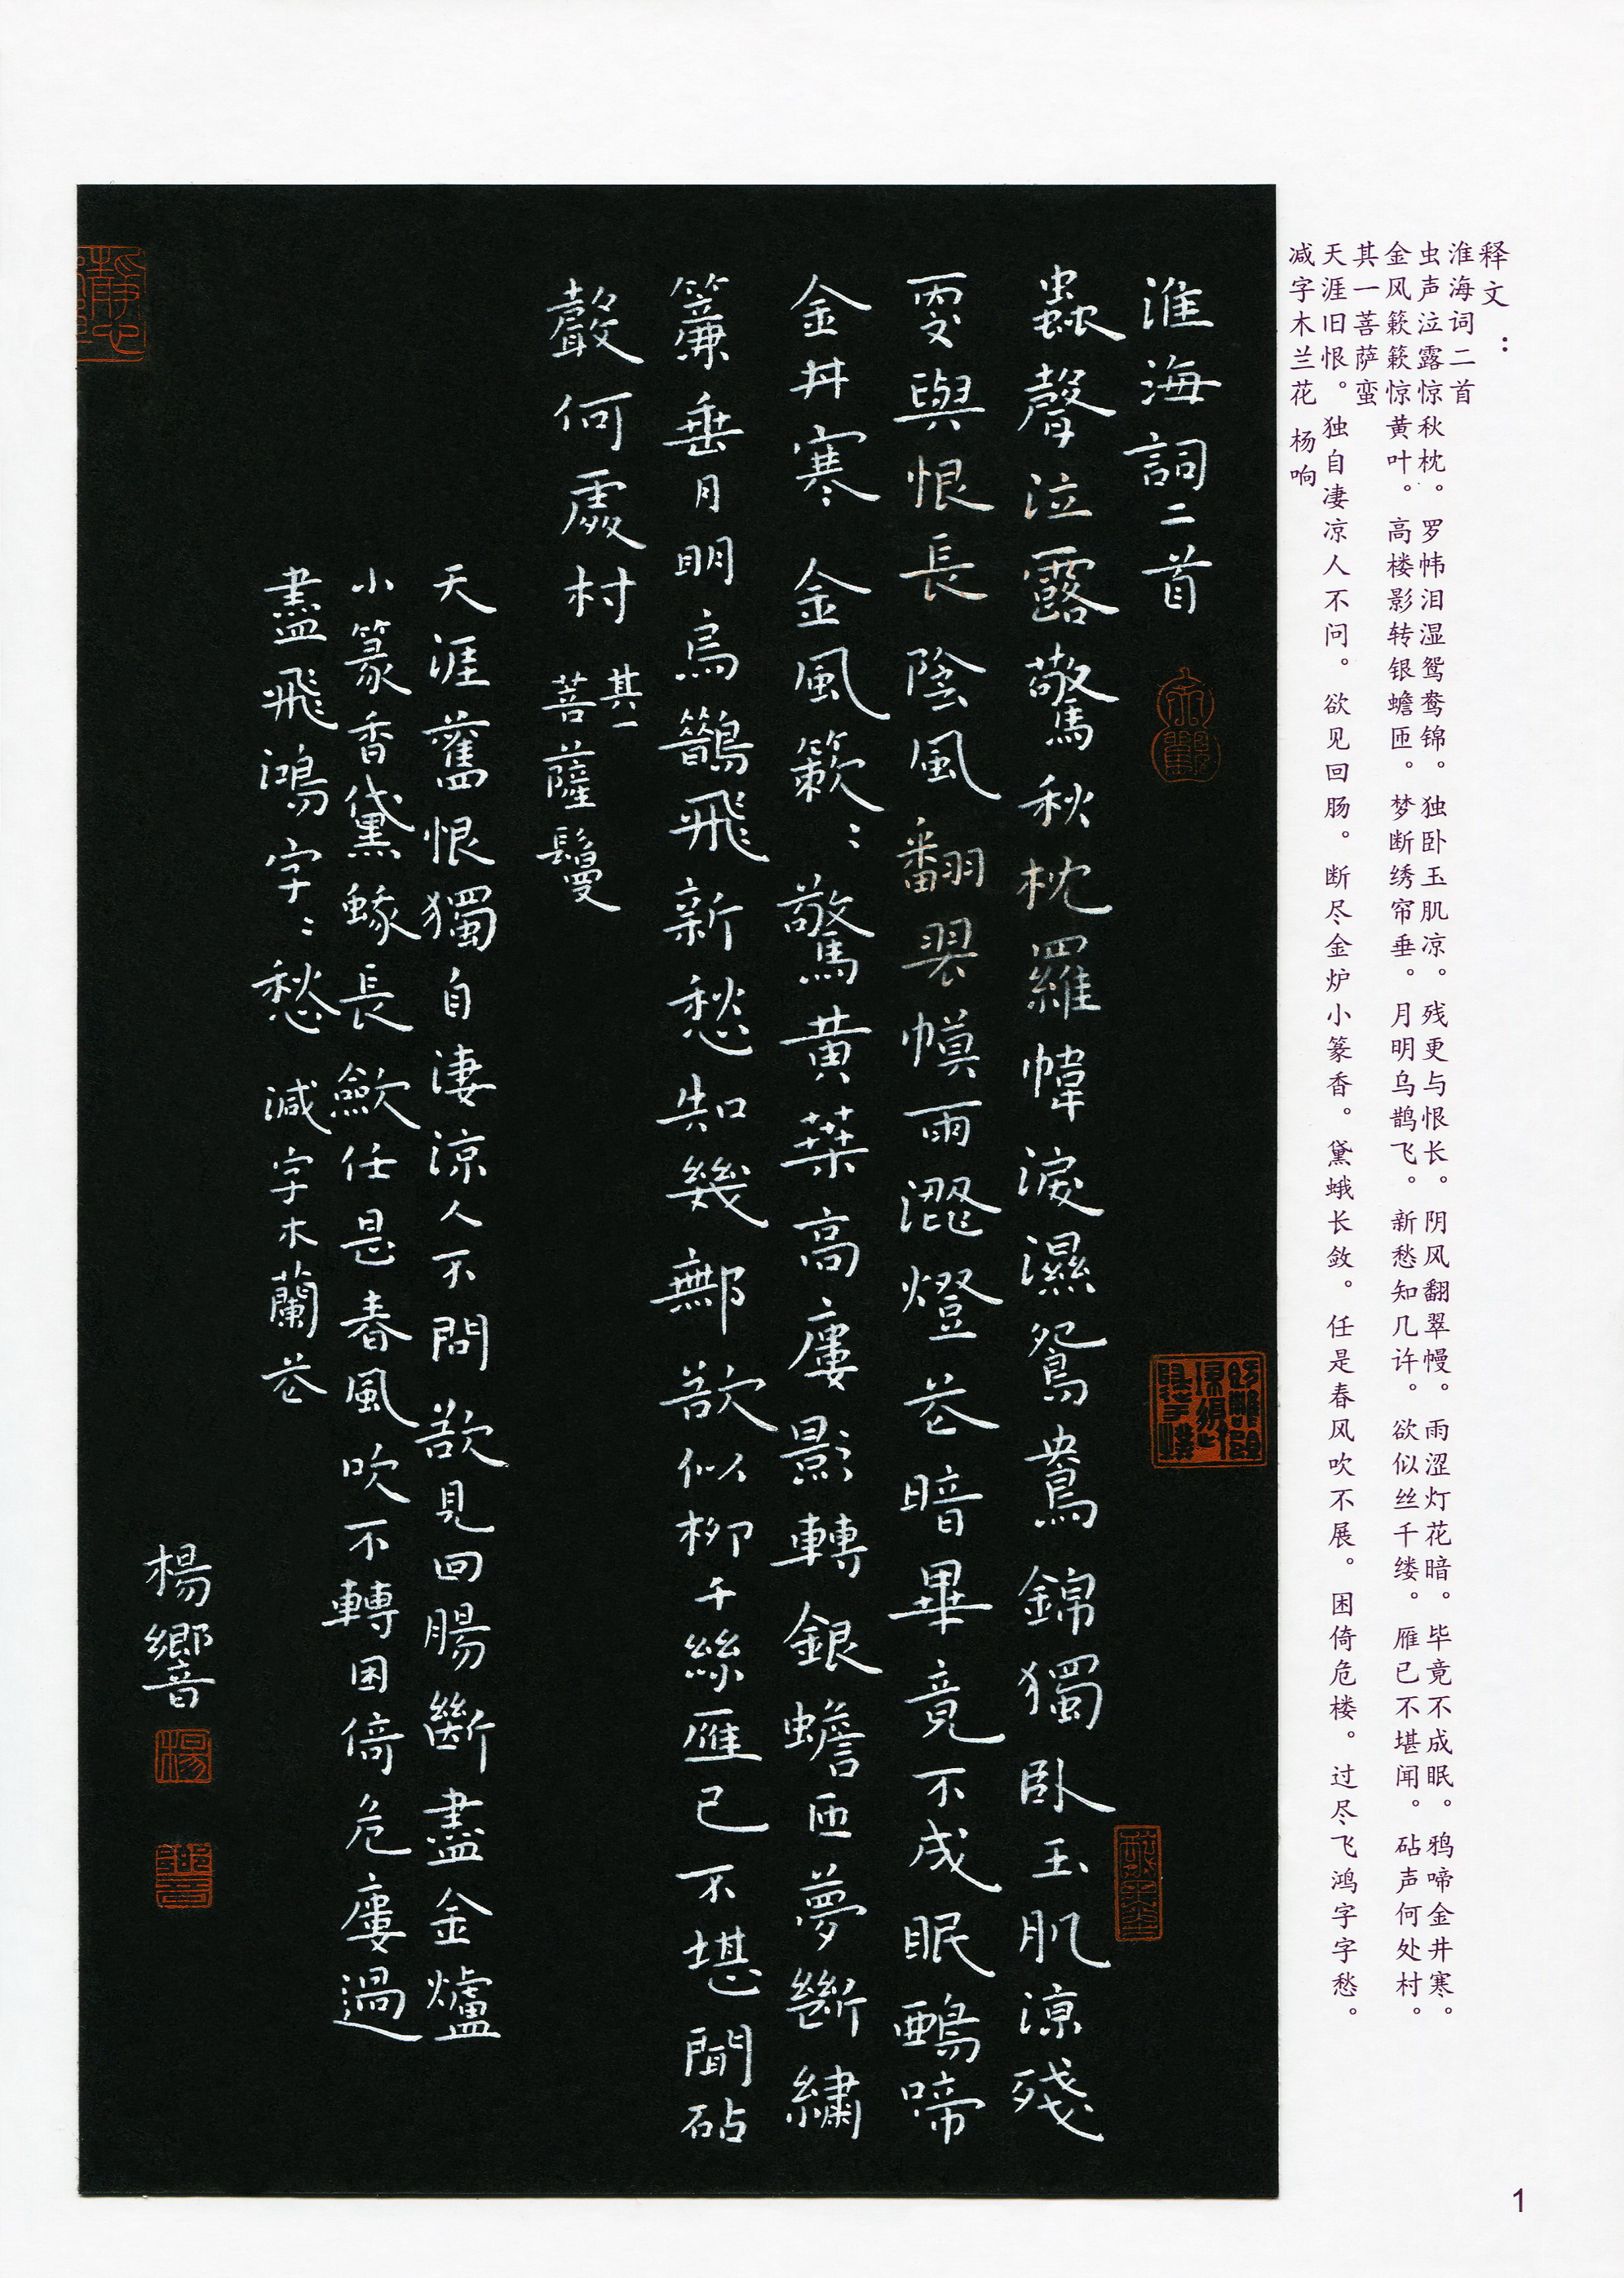 释文：
淮海词二首
虫声泣露惊秋枕。罗帏泪湿鸳鸯锦。独卧玉肌凉。残更与恨长。阴风翻翠幔。雨涩灯花暗。毕竟不成眠。鸦啼金井寒。
金风簌簌惊黄叶。高楼影转银蟾匝。梦断绣帘垂。月明乌鹊飞。新愁知几许。欲似丝千缕。雁已不堪闻。砧声何处村。
其一菩萨蛮
天涯旧恨。独自凄凉人不问。欲见回肠。断尽金炉小篆香。黛蛾长敛。任是春风吹不展。困倚危楼。过尽飞鸿字字愁。
减字木兰花 杨响
淮海詞二首
蟲聲泣露驚秋枕羅幃淚濕鴛鴦錦獨卧玉肌涼殘
更與恨長陰風翻翠幙雨澀燈花暗畢竟不成眠鵶啼
金井寒 金風簌〻驚黄葉高樓影轉銀蟾匝夢斷繡
簾垂月明烏鵲飛新愁知幾鄦欲似柳千絲雁已不堪聞砧
聲何處村
其一
菩薩鬘
天涯舊恨獨自淒涼人不問欲見回腸斷盡金爐
小篆香黛蛾長斂任是春風吹不轉困倚危樓過
盡飛鴻字〻愁 減字木蘭花
楊響
楊
響
1